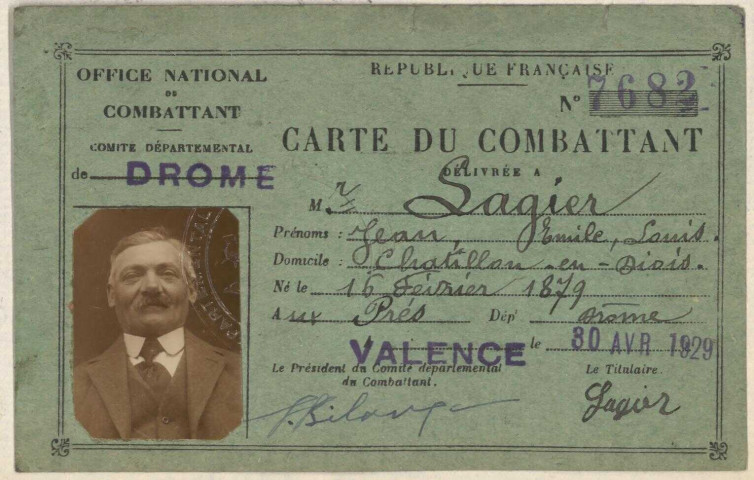 OFFICE NATIONAL
DU
COMBATTANT
COMITÉ DÉPARTEMENTAL
de DROME
RÉPUBLIQUE FRANÇAISE
N° 7682
CARTE DU COMBATTANT
DÉLIVRÉE A
M r Lagier
Prénoms : Jean, Emile, Louis.
Domicile : Chatillon-en-Diois.
Né le 16 Février 1879
A ux Prés Dépt Drôme
VALENCE le 30 AVR 1929
Le Président du Comité départemental
du Combattant.
Le Titulaire.
Lagier